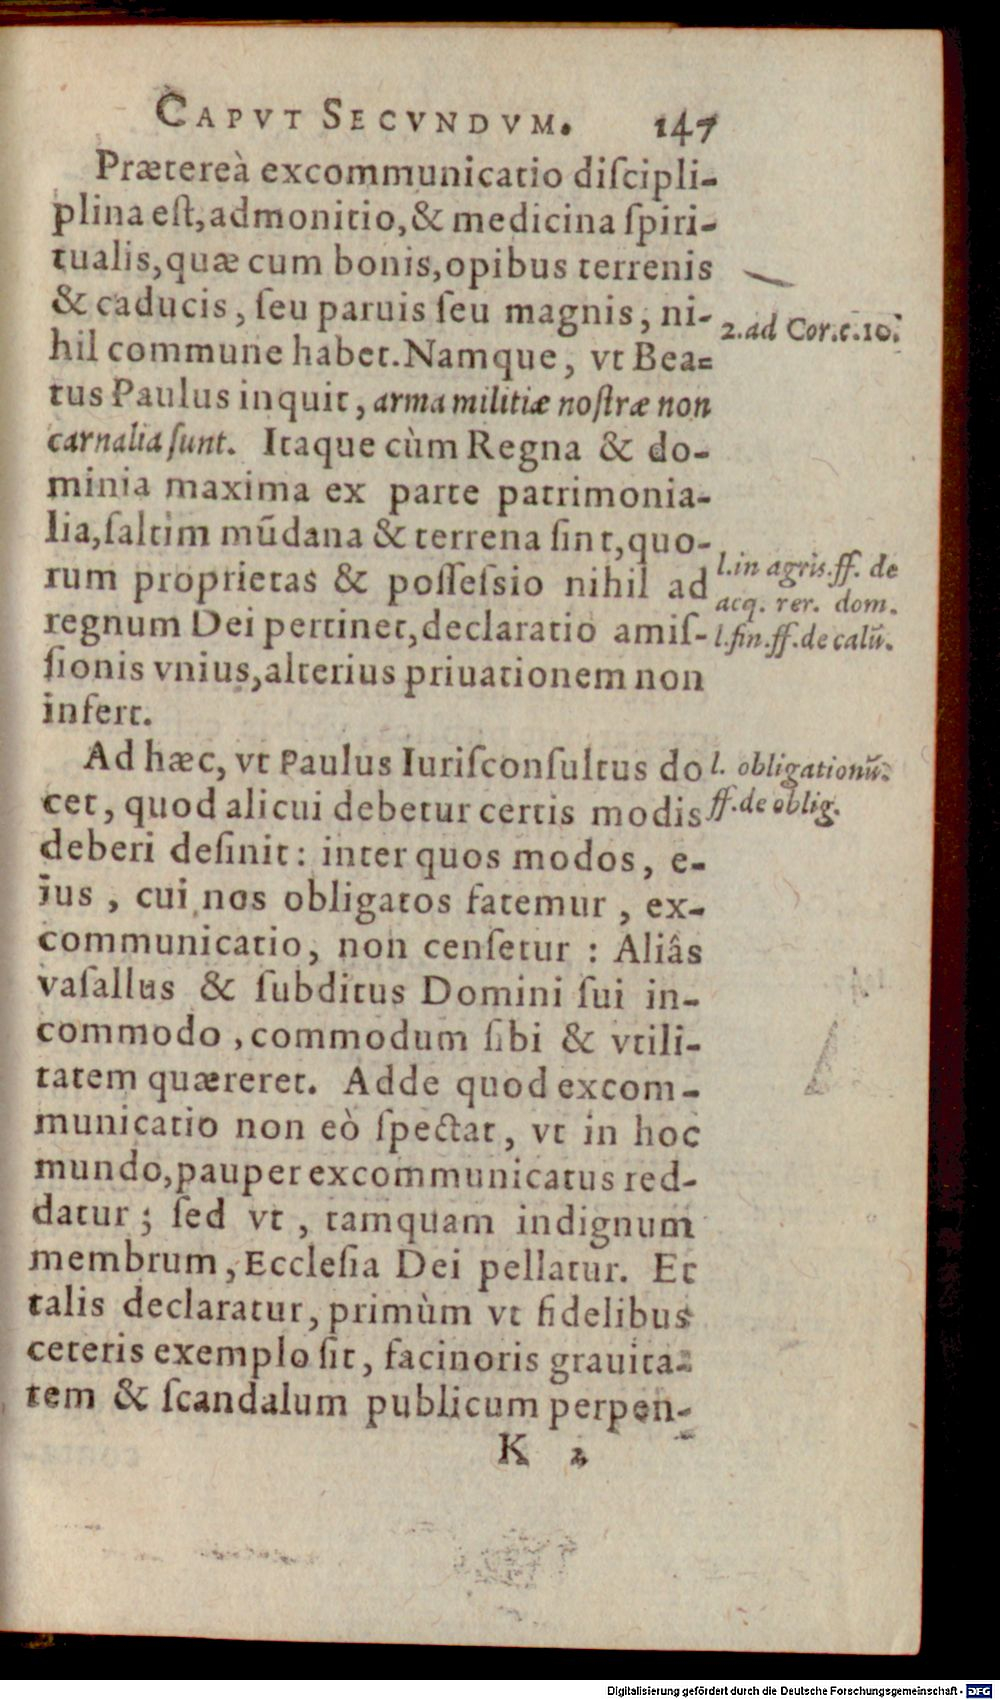 CAPVT SECVNDVM. 147
Prætereà excommunicatio discipli-
plina est, admonitio, & medicina spiri-
tualis, quæ cum bonis, opibus terrenis
& caducis, seu paruis seu magnis, ni-
2. ad Cor. c. 10.
hil commune habet. Namque, vt Bea-
tus Paulus inquit, arma militiæ nostræ non
carnalia sunt. Itaque cùm Regna & do-
minia maxima ex parte patrimonia-
lia, saltim mūdana & terrena sint, quo-
rum proprietas & possessio nihil ad
l. in agris. ff. de
acq. rer. dom.
regnum Dei pertinet, declaratio amis-
l. fin. ff. de calū.
sionis vnius, alterius priuationem non
infert.
Ad hæc, vt Paulus Iurisconsultus do
l. obligationū.
cet, quod alicui debetur certis modis
ff. de oblig.
deberi desinit: inter quos modos, e-
ius, cui nos obligatos fatemur, ex-
communicatio, non censetur: Aliâs
vasallus & subditus Domini sui in-
commodo, commodum sibi & vtili-
tatem quæreret. Adde quod excom-
municatio non eò spectat, vt in hoc
mundo, pauper excommunicatus red-
datur; sed vt, tamquam indignum
membrum, Ecclesia Dei pellatur. Et
talis declaratur, primùm vt fidelibus
ceteris exemplo sit, facinoris grauita-
tem & scandalum publicum perpen-
K 2
Digitalisierung gefördert durch die Deutsche Forschungsgemeinschaft - DFG